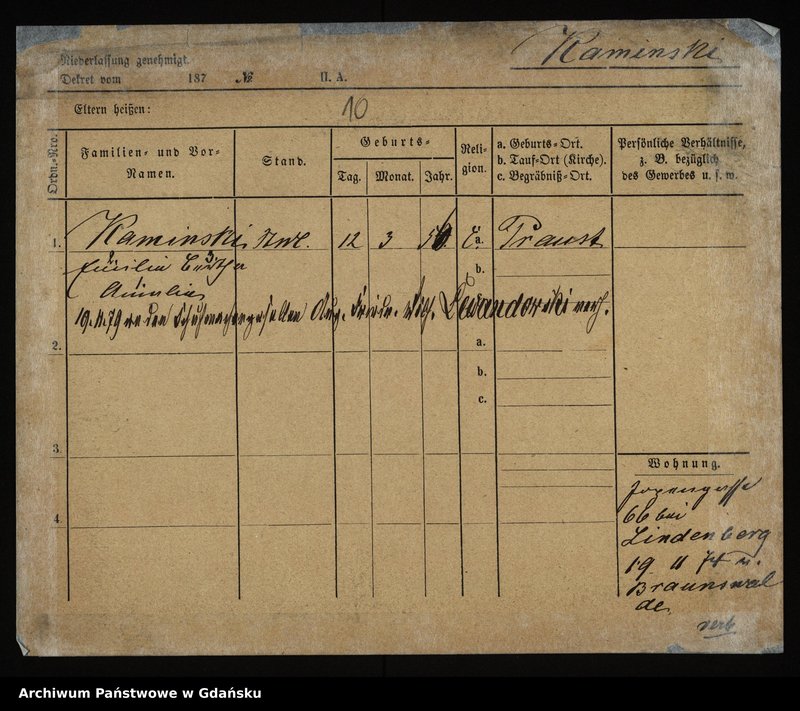 Kaminski
Niederlassung genehmigt.
Dekret vom 187 № II. A.
Eltern heißen:
10
Ordn.-Nro.
Familien- und Vor-Namen.
Stand.
Geburts-
Tag. Monat. Jahr.
Religion.
a. Geburts-Ort.
b. Tauf-Ort (Kirche).
c. Begräbniß-Ort.
Persönliche Verhältnisse,
z. B. bezüglich
des Gewerbes u. s. w.
1. Kaminski 12 3 56 a. Praust
b.
19.11.79 an den Schuhmachergesellen Aug. Friedr. Lewandowski verh.
2. a.
b.
c.
3.
Wohnung.
Jopengasse
66 bei
Lindenberg
4.
19 11
Braunswal
de
verh
Archiwum Państwowe w Gdańsku